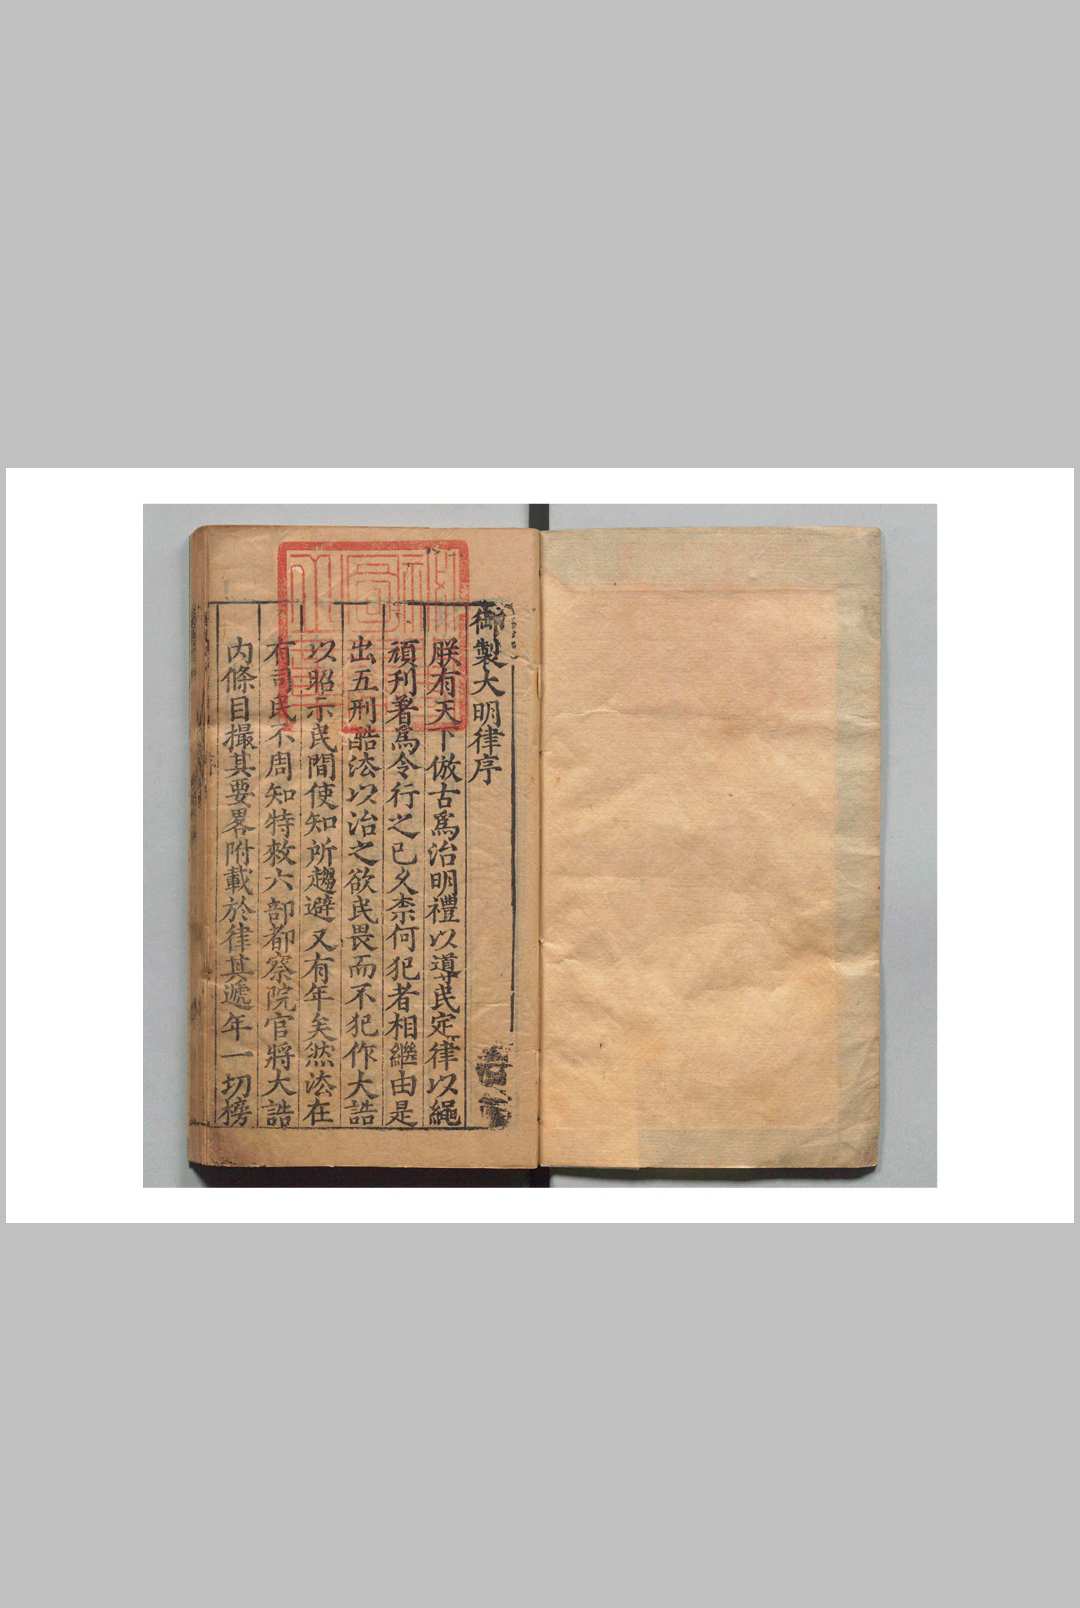 御製大明律序
朕有天下倣古爲治明禮以導民定律以繩
頑刋著爲令行之已久柰何犯者相繼由是
出五刑酷法以治之欲民畏而不犯作大誥
以昭示民間使知所趨避又有年矣然法在
有司民不周知特敕六部都察院官將大誥
内條目撮其要畧附載於律其遞年一切榜